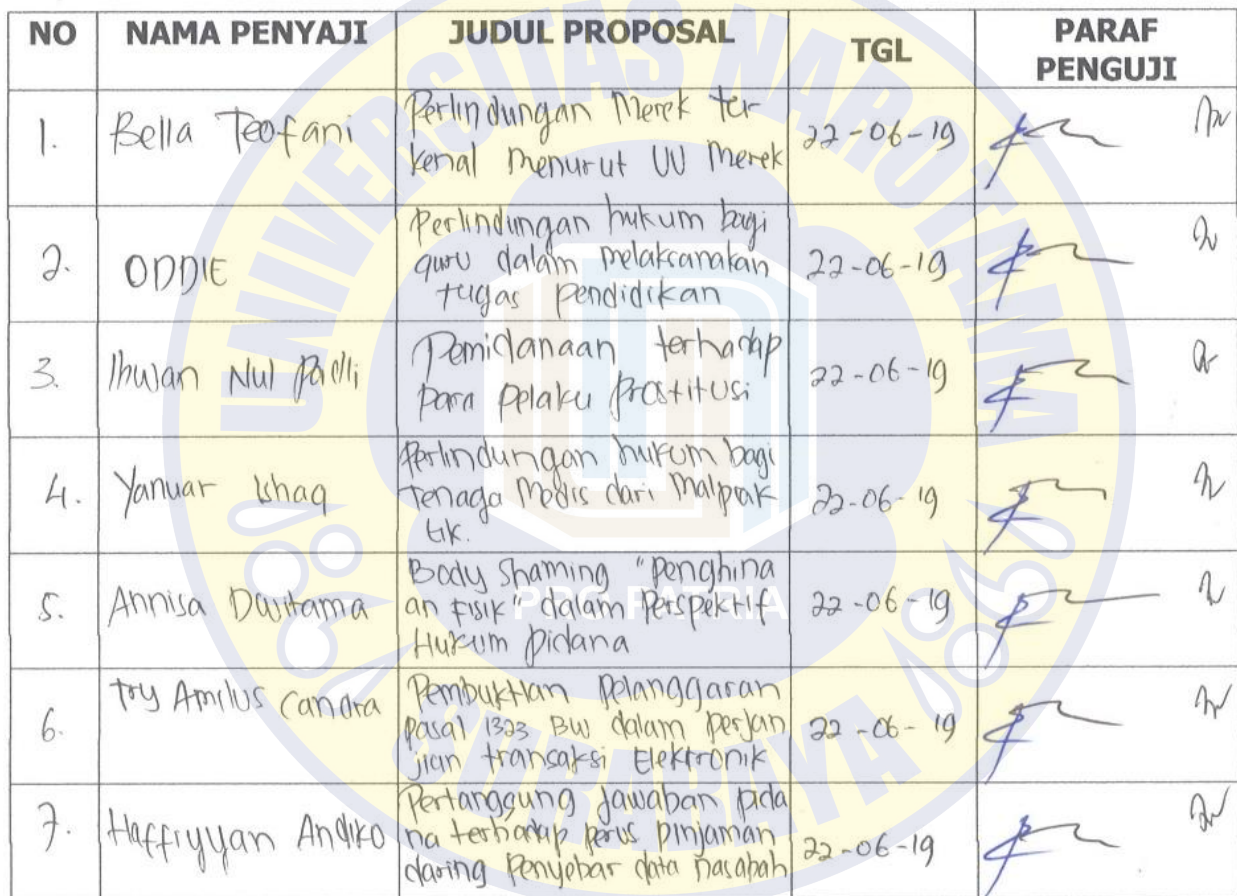 NO NAMA PENYAJI JUDUL PROPOSAL TGL PARAF
PENGUJI
1. Bella Teofani Perlindungan Merek ter-
kenal menurut UU Merek 22-06-19
2. ODDIE Perlindungan hukum bagi
guru dalam melaksanakan
tugas pendidikan 22-06-19
3. Ihwan Nul Padli Pemidanaan terhadap
para pelaku prostitusi 22-06-19
4. Yanuar Ishaq Perlindungan hukum bagi
tenaga Medis dari Malprak
tik. 22-06-19
5. Annisa Dwitama Body Shaming "Penghina
an Fisik" dalam Perspektif
Hukum Pidana 22-06-19
6. Try Amilus Candra Pembuktian Pelanggaran
pasal 1323 BW dalam perjan
jian transaksi Elektronik 22-06-19
7. Haffiyyan Andiko Pertanggung jawaban pida
na terhadap perus pinjaman
daring Penyebar data nasabah 22-06-19
UNIVERSITAS NAROTAMA
PRO PATRIA
SURABAYA